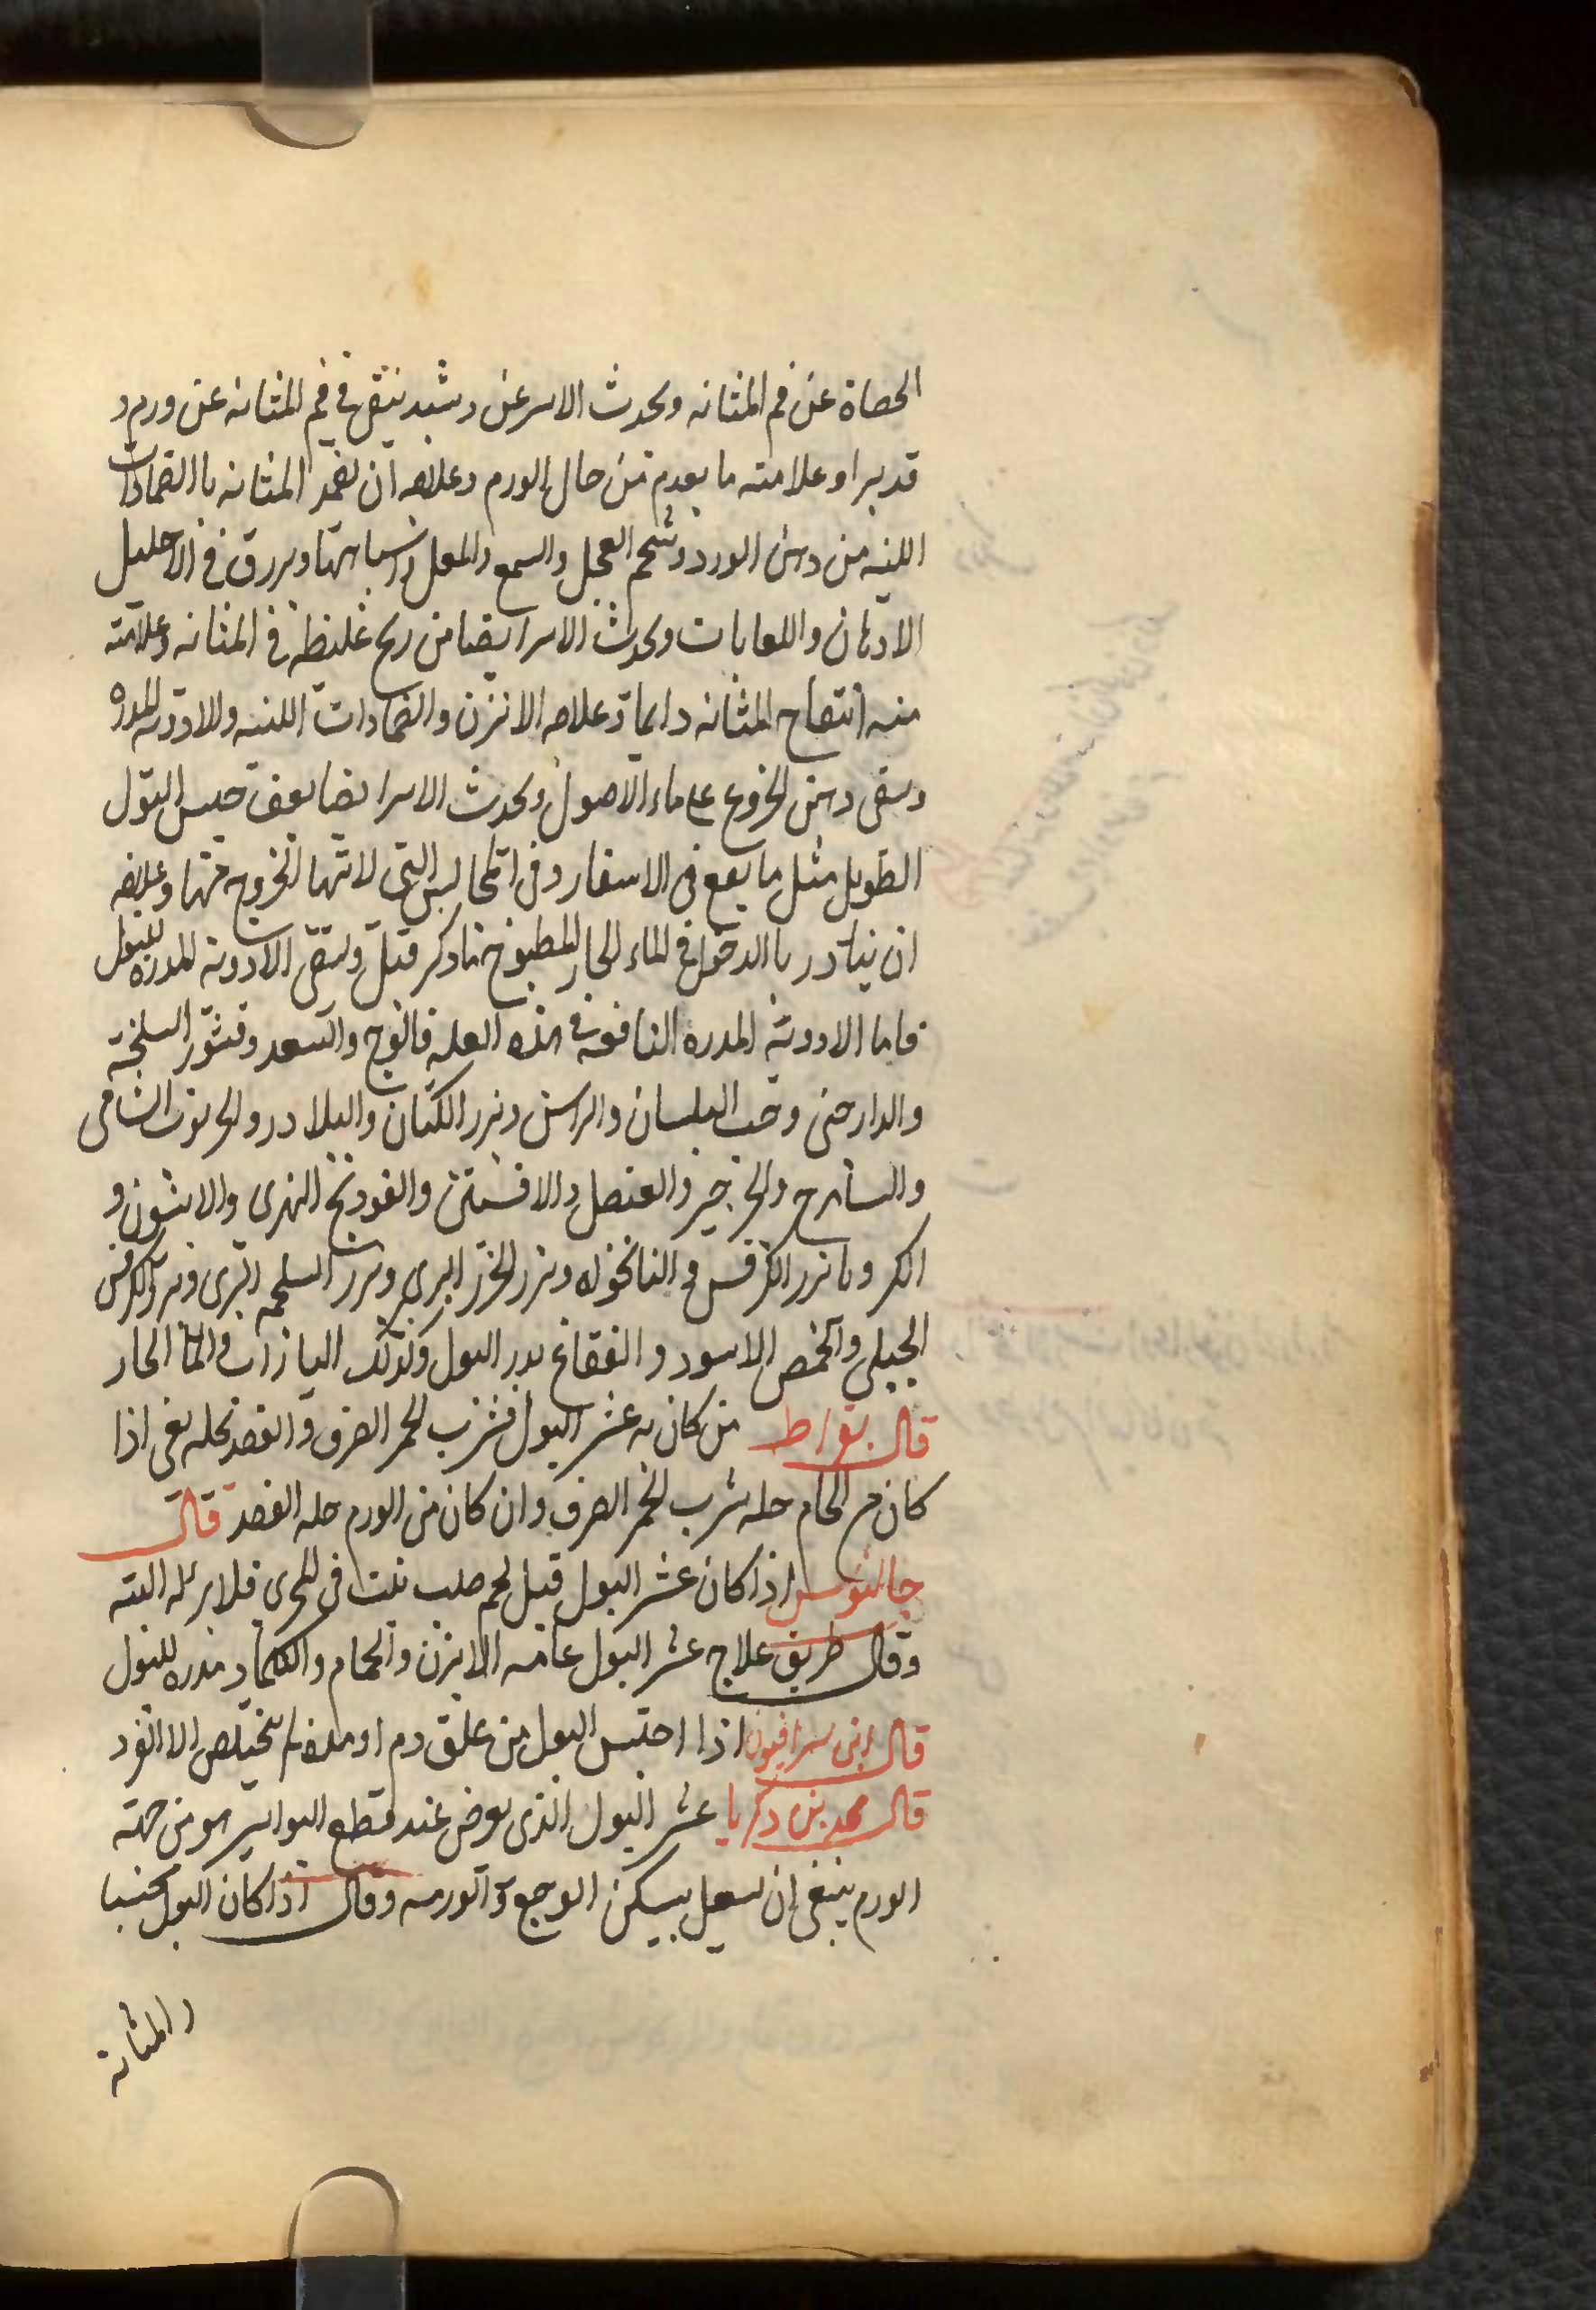 الحصاة عن فم المثانه ويحدث الاسر عن دشبد ينبق في فم المثانه عن ورم و
قد برا وعلامته ما يعدم من حال الورم وعلاجه ان يضمد المثانه باالضمادات
اللينه من دهن الورد وشحم العجل والسمع والمعل واشباهها ويزرق في الاحليل
الادهان واللعابات ويحدث الاسر ايضا من ريح غليظه في المثانه وعلامته
منه انتفاح المثانه دايما وعلاجه الابزن والضمادات اللينه والادويه المدره
وسقى دهن الخروع على ماء الاصول ويحدث الاسر ايضا بعقب حبس البول
الطويل مثل ما يقع في الاسفار وفي المجالس التي لا تتهيا الخروج منها وعلاجه
ان يبادر باالدخول في الماء الحار المطبوخ بما ذكر قبل ويسقى الادويه المدره للبول
فاما الادويه المدره النافعه في هذه العله فالوج والسعد وقشور السليخة
والدارصنى وحب البلسان والراسن وبزر الكتان والبلادر والخرنوب الشامى
والساهرج والجرجير والعنصل والافسنتين والفودنج النهرى والانيسون و
الكرويا بزر الكرفس والنانخواه وبزر الجزر البرى وبزر السلجم البرى وبزر الكرفس
الجبلى والحمص الاسود والفقاع يدر البول وكذلك اليازاب والماء الحار
قال بقراط من كان به عسر البول فشرب الخمر الصرف والفصد يحله يعنى اذا
كان من الخام حله شرب الخمر الصرف وان كان من الورم حله الفصد قال
جالينوس اذا كان عسر البول قبل لحم صلب نبت في المجرى فلا برء له البته
وقال طريق علاج عسر البول عامه الابزن والحمام والكماد مدره للبول
قال ابن سرافيون اذا احتبس البول من علق دم او مده لم يتخلص الا القود
قال محمد بن زكريا عسر البول الذى يعرض عند قطع البواسير هو من جهة
الورم ينبغى ان يعمل بيسكن الوجع والورمه وقال اذا كان البول محتبسا
والمثانة